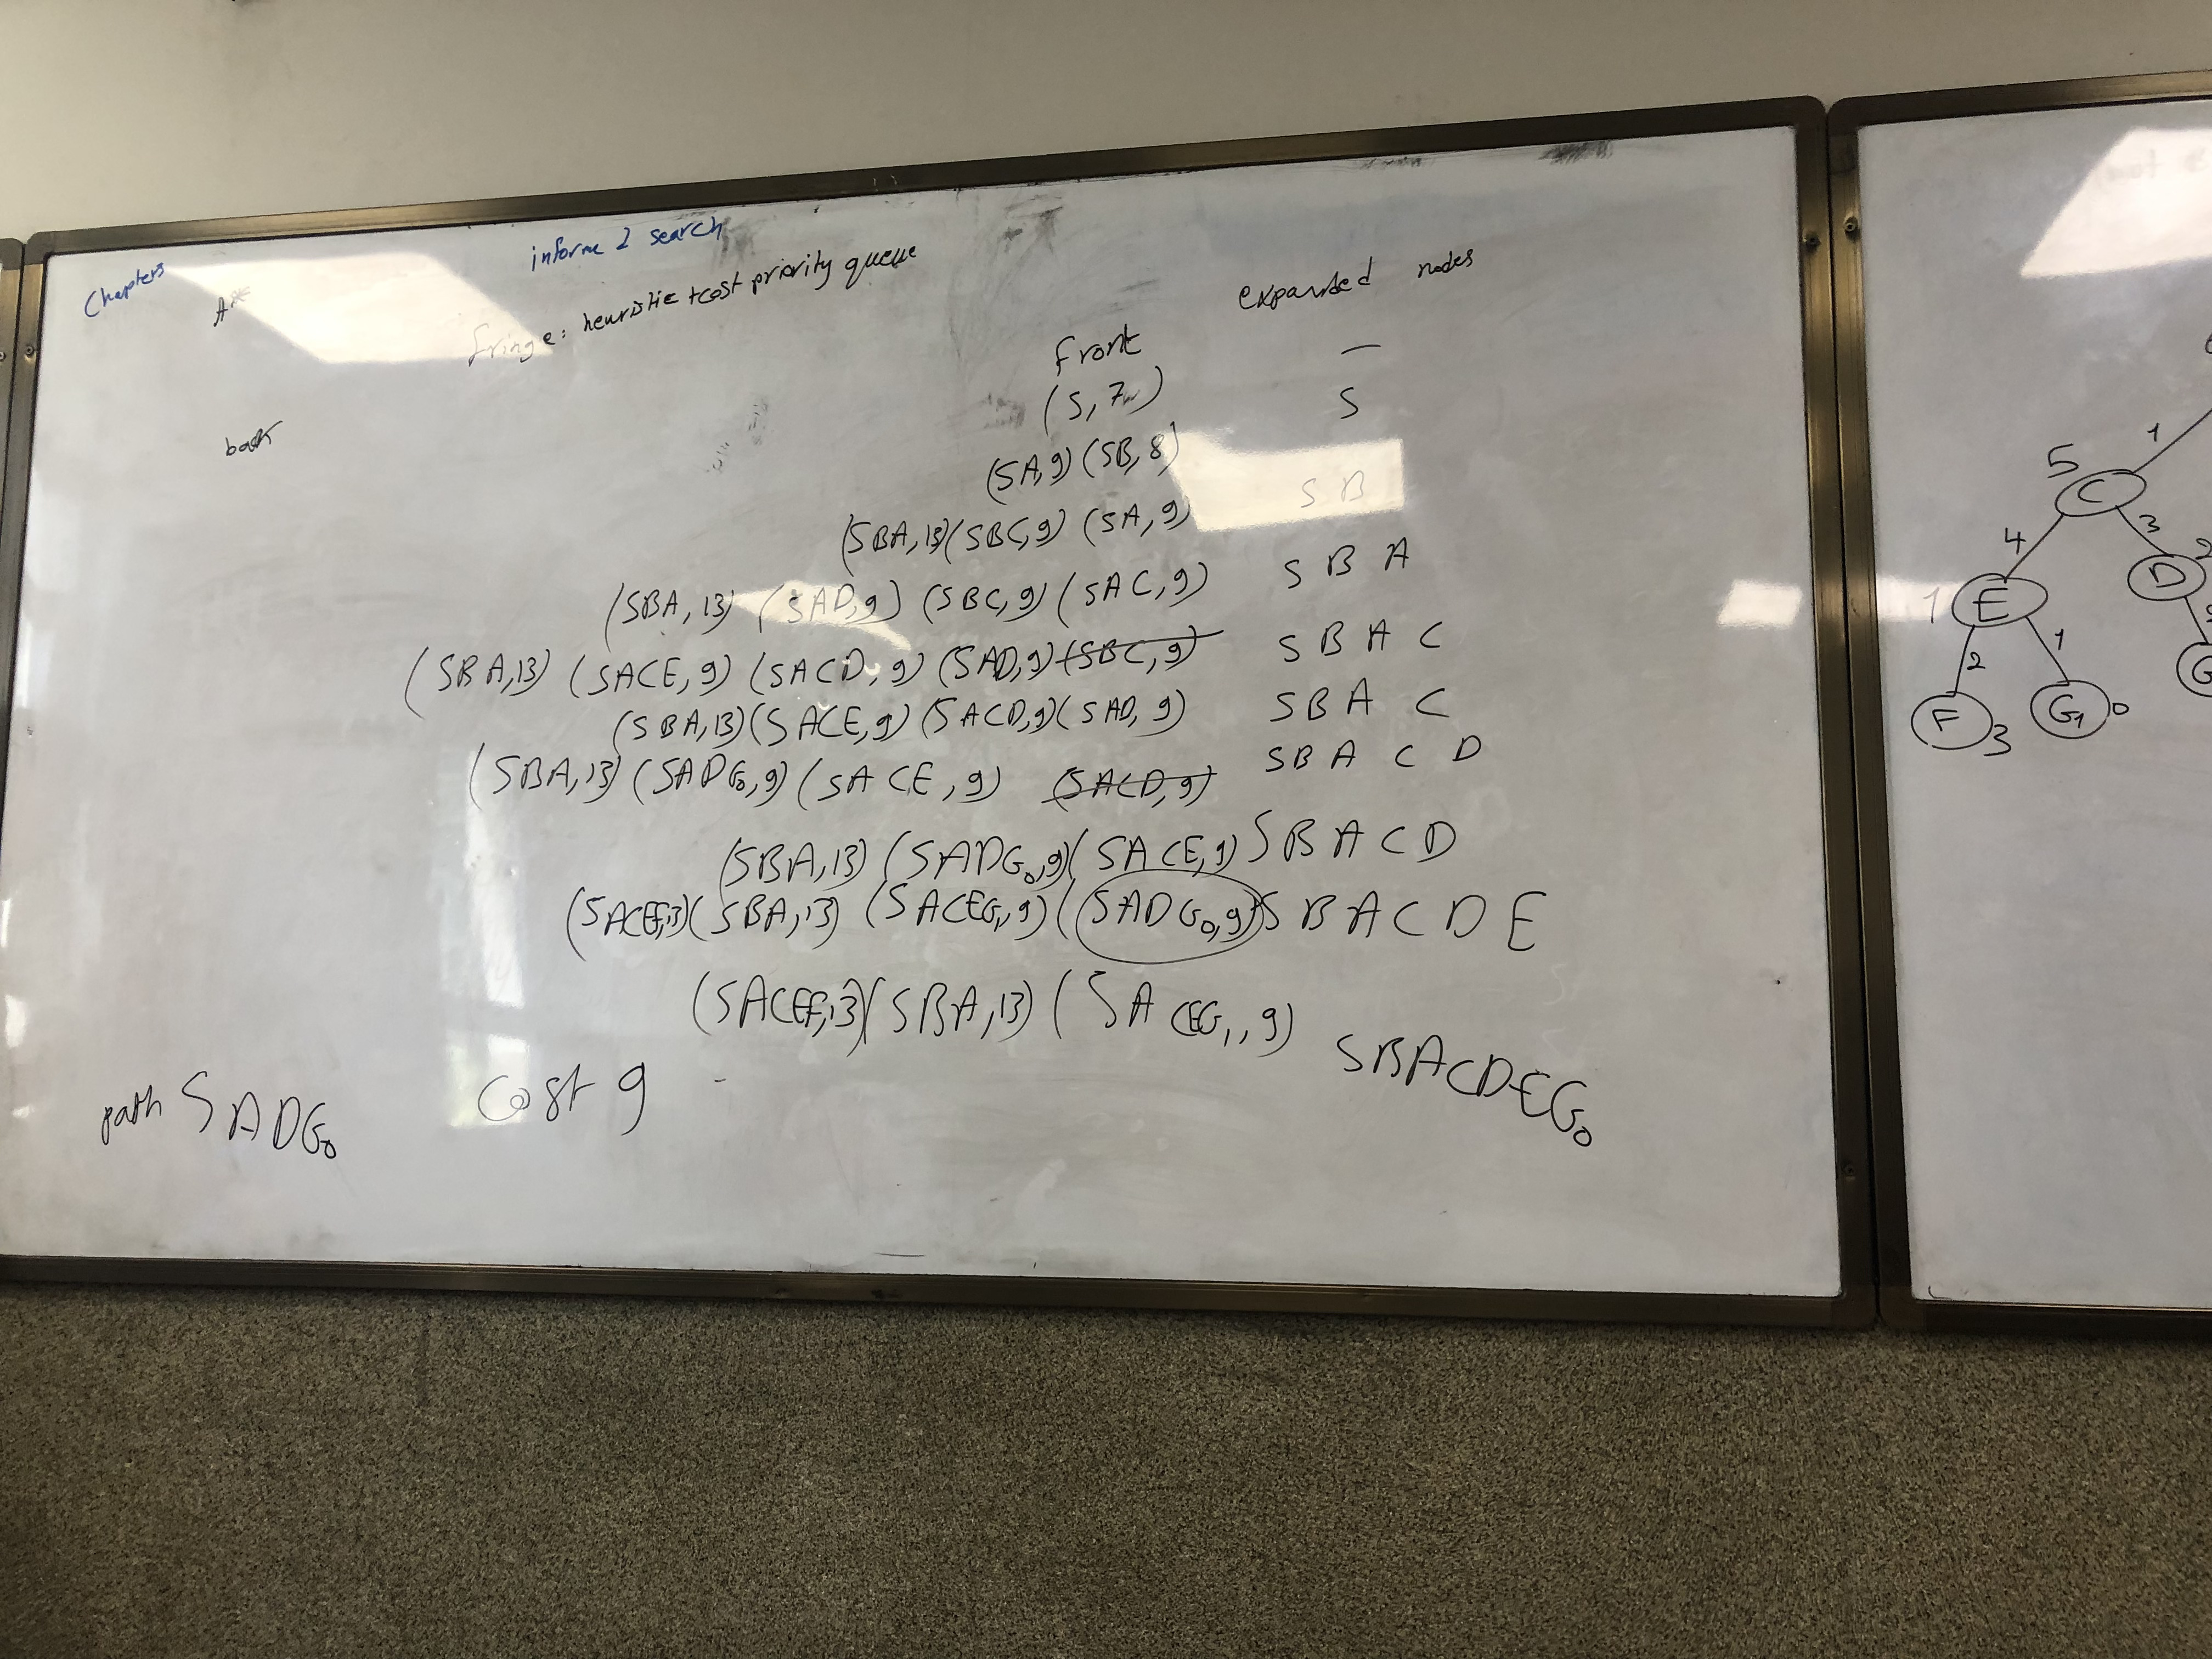 Chapters
informe 2 search
A*
fringe: heuristic + cost priority queue
expanded nodes
front
—
back
(S, 7)
S
(SA, 9) (SB, 8)
S B
(SBA, 13) (SBC, 9) (SA, 9)
S B A
(SBA, 13) (SAD, 9) (SBC, 9) (SAC, 9)
S B A C
(SBA, 13) (SACE, 9) (SACD, 9) (SAD, 9) (SBC, 9)
S B A C
(SBA, 13) (SACE, 9) (SACD, 9) (SAD, 9)
S B A C D
(SBA, 13) (SADG0, 9) (SACE, 9) (SACD, 9)
(SBA, 13) (SADG0, 9) (SACE, 9) S B A C D
(SACEF, 13) (SBA, 13) (SACEG1, 9) (SADG0, 9) S B A C D E
(SACEF, 13) (SBA, 13) (SACEG1, 9)
SBACDEG0
path SADG0 cost 9
1
5
C
4
3
2
1
E
D
2
1
G
F
3
G1
0